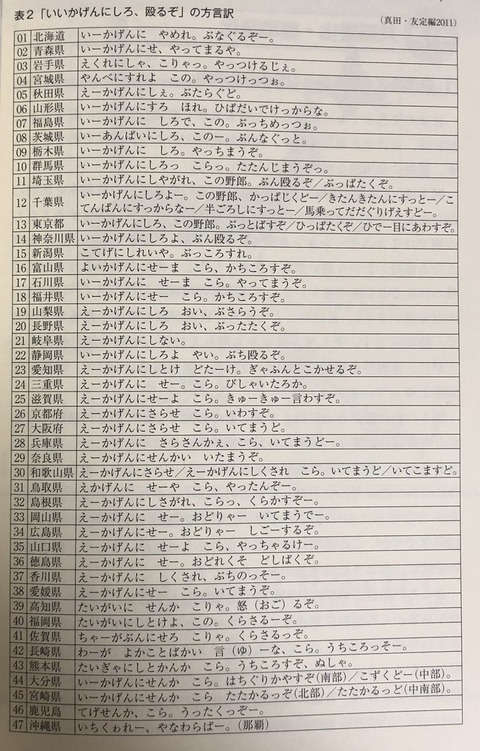 表2「いいかげんにしろ、殴るぞ」の方言訳
（真田・友定編2011）
01 北海道 いーかげんに やめれ。ぶなぐるぞー。
02 青森県 いーかげんにせ、やってまるや。
03 岩手県 えくれにしゃ、こりゃっ。やっつけるじぇ。
04 宮城県 やんべにすれよ この。やっつけっつぉ。
05 秋田県 えーかげんにしぇ。ぶたらぐど。
06 山形県 いーかげんにすろ ほれ。ひばだいでけっからな。
07 福島県 いーかげんに しろで、この。ぶっちめっつぉ。
08 茨城県 いーあんばいにしろ、このー。ぶんなぐっと。
09 栃木県 いーかげんに しろ。やっちまうぞ。
10 群馬県 いーかげんにしろっ こらっ。たたんじまうぞっ。
11 埼玉県 いーかげんにしやがれ、この野郎。ぶん殴るぞ／ぶっぱたくぞ。
12 千葉県 いーかげんにしろよー。この野郎、かっぱじくどー／きたんきたんにすっとー／こ
てんぱんにすっからなー／半ごろしにすっとー／馬乗ってだだぐりげえすどー。
13 東京都 いーかげんにしろ、この野郎。ぶっとばすぞ／ひっぱたくぞ／ひでー目にあわすぞ。
14 神奈川県 いーかげんにしろよ、ぶん殴るぞ。
15 新潟県 こてげにしれいや。ぶっころすれ。
16 富山県 よいかげんにせーま こら、かちころすぞ。
17 石川県 いーかげんに せーま こら。やってまうぞ。
18 福井県 いーかげんにせー こら。かちころすぞ。
19 山梨県 えーかげんにしろ おい、ぶさらうぞ。
20 長野県 えーかげんにしろ おい、ぶったたくぞ。
21 岐阜県 えーかげんにしない。
22 静岡県 いーかげんにしろよ やい。ぶち殴るぞ。
23 愛知県 えーかげんにしとけ どたーけ。ぎゃふんとこかせるぞ。
24 三重県 えーかげんに せー。こら。びしゃいたろか。
25 滋賀県 えーかげんにせーよ こら。きゅーきゅー言わすぞ。
26 京都府 えーかげんにさらせ こら。いわすぞ。
27 大阪府 えーかげんにさらせ こら。いてまうど。
28 兵庫県 えーかげんに さらさんかぇ、こら、いてまうどー。
29 奈良県 えーかげんにせんかい いたまうぞ。
30 和歌山県 えーかげんにさらせ／えーかげんにしくされ こら。いてまうど／いてこますど。
31 鳥取県 えかげんに せーや こら、やったんぞー。
32 島根県 えーかげんにしさがれ、こらっ、くらかすぞー。
33 岡山県 えーかげんに せー。おどりゃー いてまうでー。
34 広島県 えーかげんにせー。おどりゃー しごーするぞ。
35 山口県 えーかげんに せーよ こら、やっちゃるけー。
36 徳島県 えーかげんに せー。おどれくそ どしばくぞ。
37 香川県 えーかげんに しくされ、ぶちのっそー。
38 愛媛県 えーかげんに せー こら。
39 高知県 たいがいに せんか こりゃ。怒（おご）るぞ。
40 福岡県 たいがいにしとけよ、この。くらさるぞー。
41 佐賀県 ちゃーがぶんにせろ こりゃ。くらさるっぞ。
42 長崎県 わーが よかことばかい 言（ゆ）ーな、こら。うちころっそー。
43 熊本県 たいぎゃにしとかんか こら。うちころすぞ、ぬしゃ。
44 大分県 いーかげんにせんか こら。はちぐりかやすぞ（南部）／こずくどー（中部）。
45 宮崎県 いーかげんにせんか こら たたかるっぞ（北部）／たたかるっど（中南部）。
46 鹿児島 てげせんか、こら。うったくっぞー。
47 沖縄県 いちくゎれー、やなわらばー。（那覇）